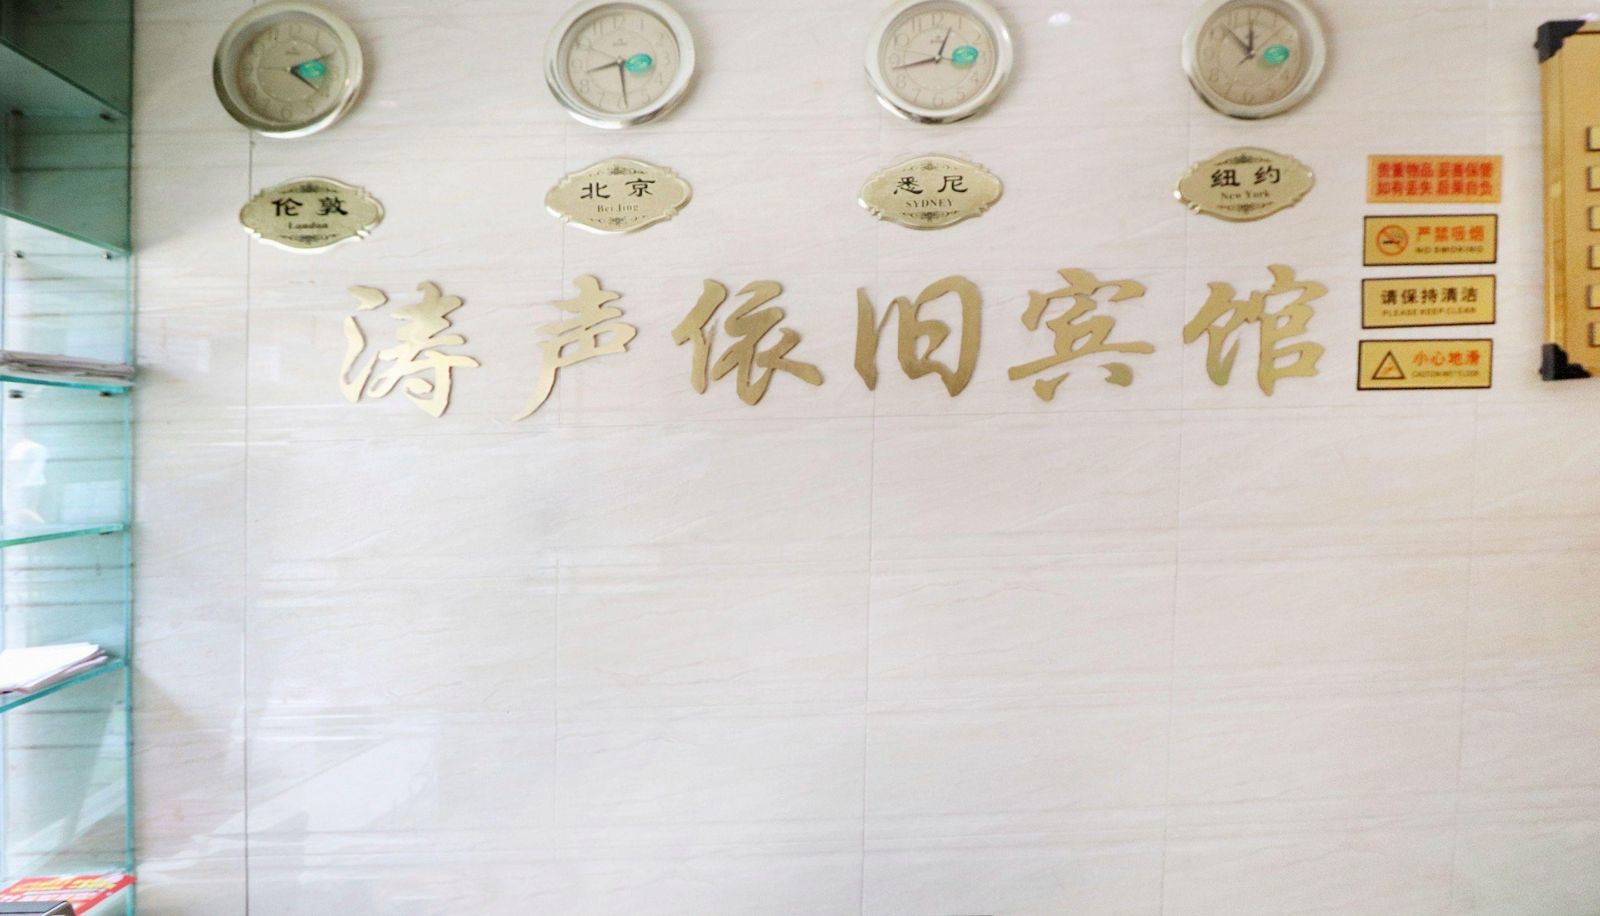 伦敦
London
北京
BeiJing
悉尼
SYDNEY
纽约
New York
涛声依旧宾馆
贵重物品 妥善保管
如有丢失 后果自负
严禁吸烟
NO SMOKING
请保持清洁
PLEASE KEEP CLEAN
小心地滑